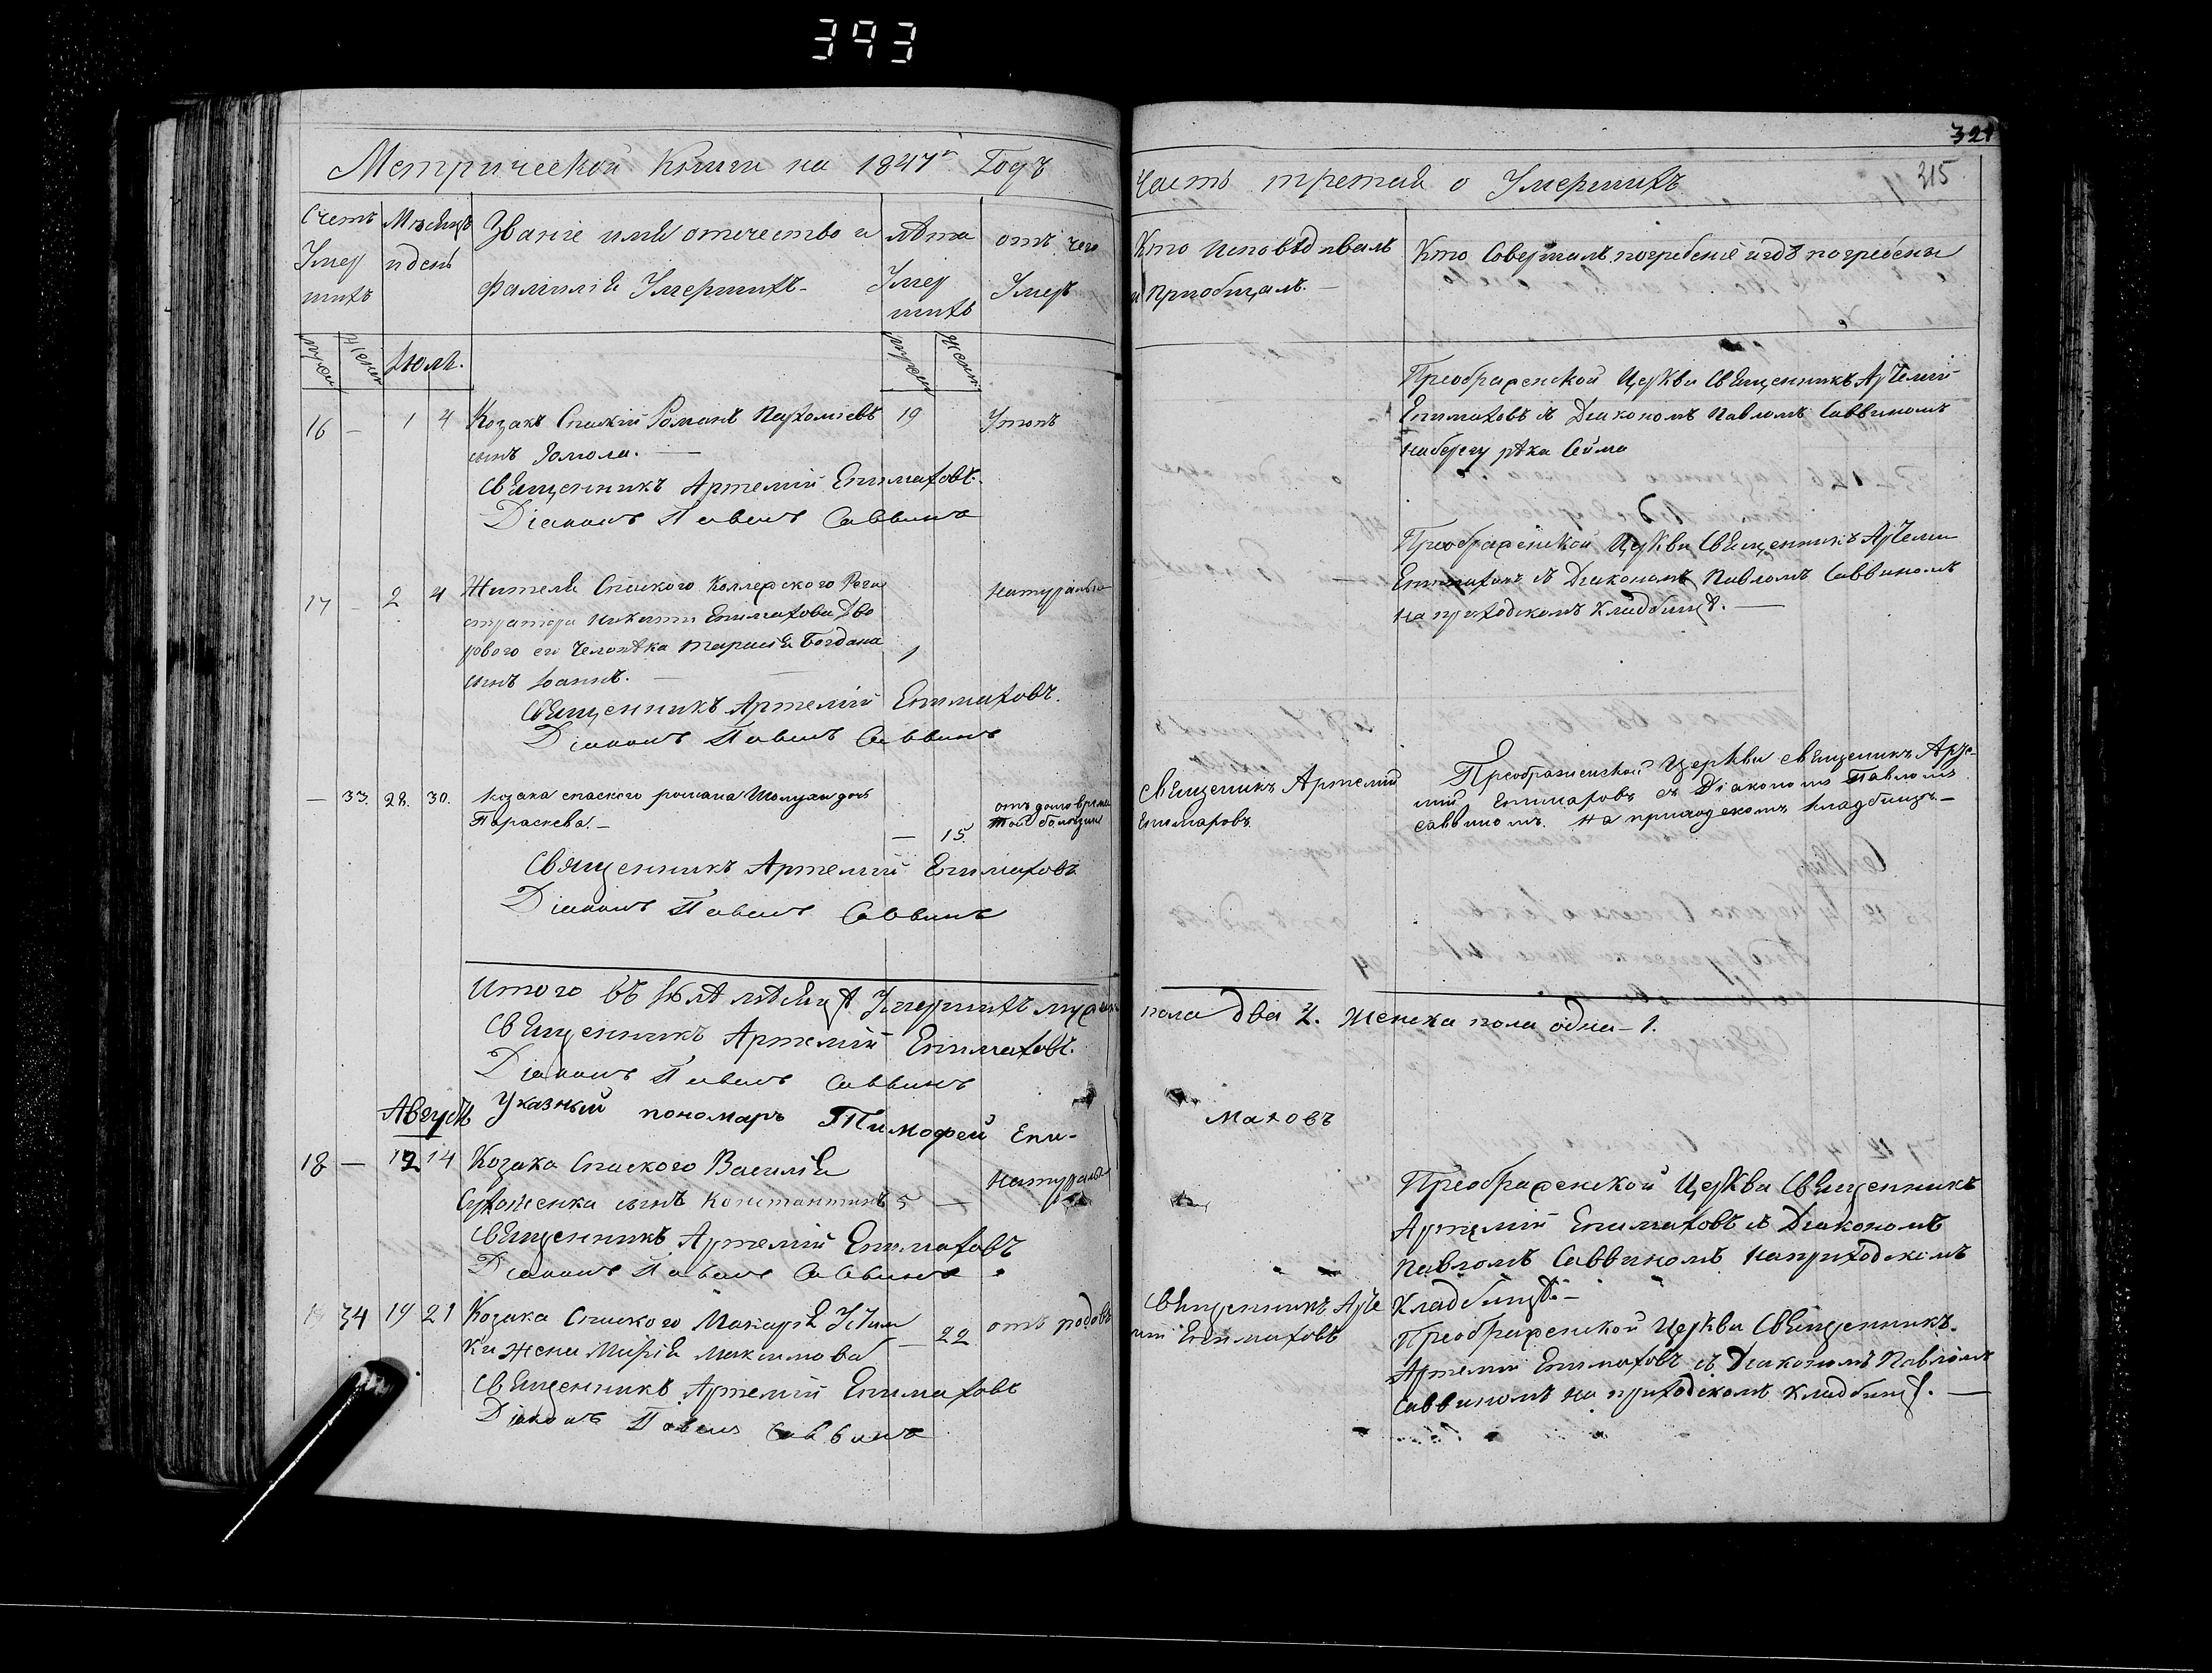 393
324
315
Метрической Книги на 1847й Годъ
Часть третая о Умершихъ
Счетъ Умер шихъ
Мѣсяцъ и день
Званіе имя отечество и фамилія Умершихъ
лѣта Умер шихъ
отъ чего Умеръ
Кто исповѣдывалъ и Приобщалъ.
Кто Совершалъ погребеніе и гдѣ погребены
мужеск женск
Іюль.
мужеск женск
16 — 1 4 Козакъ Спаский Романъ Пархоміевъ 19 Утопъ
сынъ
Священникъ Артемий Епимаховъ.
Діаконъ Павелъ Саввинъ
Преображенской Церкви Священникъ Артемий
Епимаховъ съ Диакономъ Павломъ Саввиномъ
на берегу рѣки Сейма
17 — 2 4 Жителя Спаского Коллежского Реги
стратора Никиты Епимахова Дво
рового его Человѣка Тарасия Богдана 1
сынъ Іоаннъ. —
натурально
Священникъ Артемій Епимаховъ.
Діаконъ Павелъ Саввинъ
Преображенской Церкви Священникъ Артемий
Епимаховъ съ Диакономъ Павломъ Саввиномъ
на приходскомъ Кладбищѣ. —
— 33. 28. 30. Козака спаского романа Шолухи дочь
Параскева. — — 15.
Священникъ Артемий Епимаховъ
Діаконъ Павелъ Саввинъ
Священикъ Артемий
Епимаровъ
Преображенской Церкви священикъ Арте-
мий Епимаровъ съ Діакономъ Павломъ
саввиномъ. на приходскомъ кладбищѣ. —
Итого въ Іюлѣ мѣсяцѣ Умершихъ мужеска
пола два 2. Женска пола одна — 1.
Священникъ Артемій Епимаховъ.
Діаконъ Павелъ Саввинъ
Указный пономарь Тимофей Епи-
маховъ
Августъ
18 — 12 14 Козака Спаского Василія
сынъ Константинъ 5 — натурально
Священникъ Артемій Епимаховъ
Діаконъ Павелъ Саввинъ
Преображенской Церкви Священникъ
Артемій Епимаховъ съ Диакономъ
Павломъ Саввиномъ на приходскомъ
Кладбищѣ. —
34 19 21 Козака Спаского Макарія Устим
ки жена Марія Максимова — 22 отъ родовъ
Священникъ Артемий Епимаховъ
Діаконъ Павелъ Саввинъ
Священникъ Арте
мий Епимаховъ
Преображенской Церкви Священникъ
Артемий Епимаховъ съ Диакономъ Павломъ
Саввиномъ на приходскомъ Кладбищѣ. —